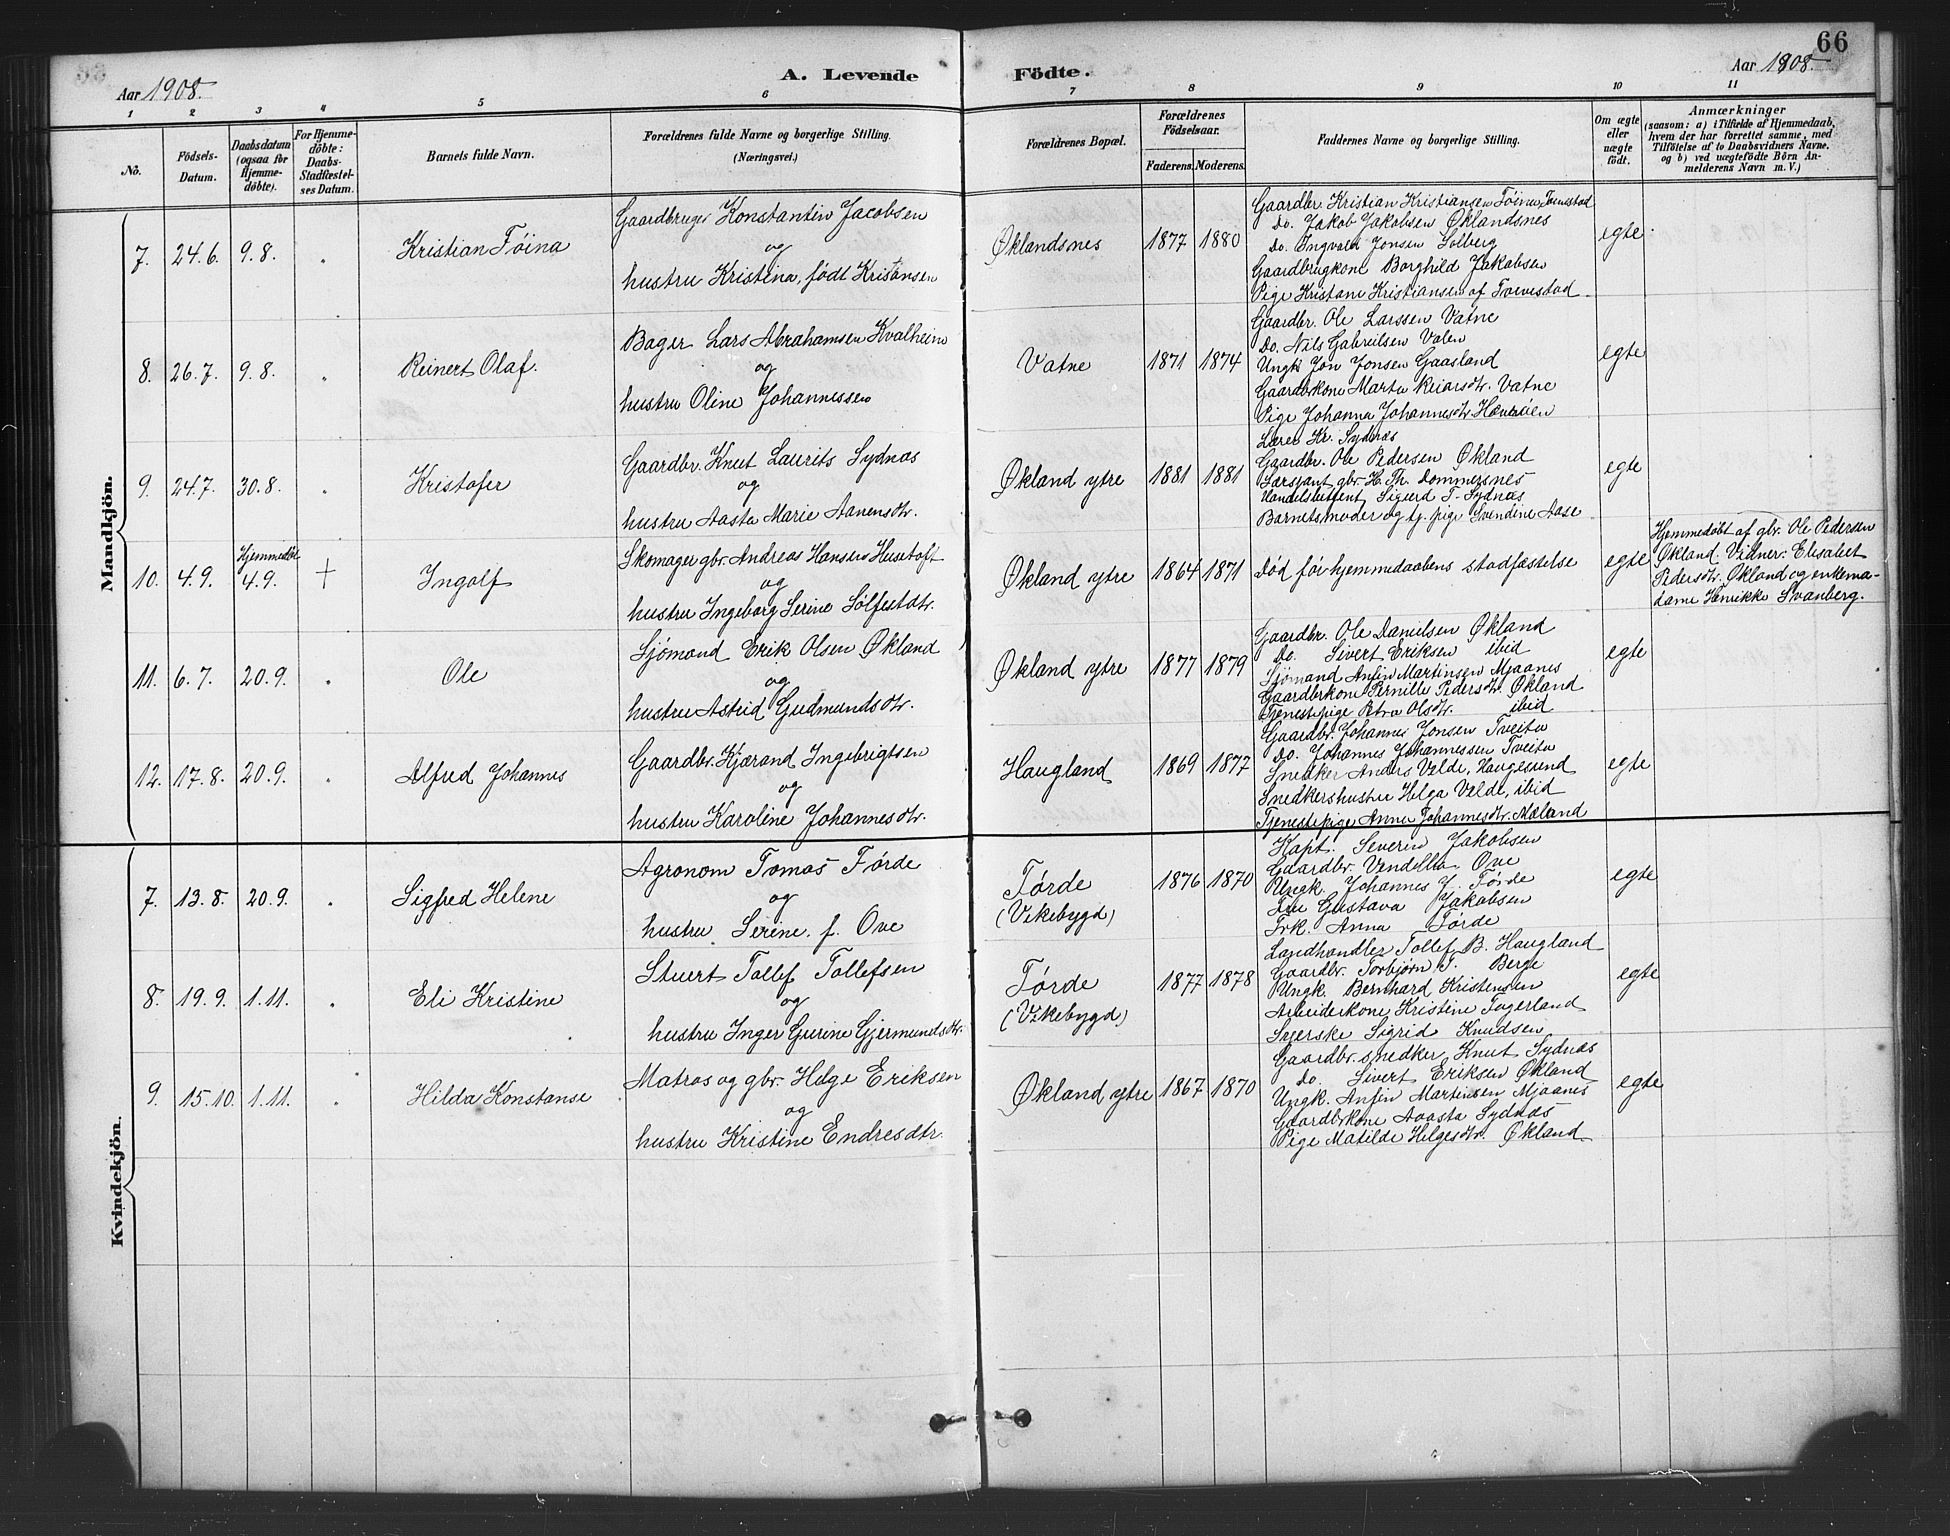 66
Aar 1908.
A. Levende Födte.
Aar 1908.
1 2 3 4 5 6 7 8 9 10 11
No.
Födsels-Datum.
Daabsdatum (ogsaa for Hjemme-döbte).
For Hjemme-döbte: Daabs-Stadfæstel-ses Datum.
Barnets fulde Navn.
Forældrenes fulde Navne og borgerlige Stilling.
(Næringsvei.)
Forældrenes Bopæl.
Forældrenes Födselsaar.
Faderens. Moderens.
Faddernes Navne og borgerlige Stilling.
Om ægte eller uægte födt.
Anmærkninger
(saasom: a) i Tilfælde af Hjemmedaab, hvem der har forrettet samme, med Tilföielse af to Daabsvidners Navne, og b) ved uægtefödte Börn An-melderens Navn m. V.)
Mandkjön.
7. 24.6. 9.8. " Kristian Föina
Gaardbruger Konstantin Jacobsen
og
hustru Kristina, födt Kristansen
Øklandsnes 1877 1880
Gaardbr. Kristian Kristiansen Föina, Toevestad
Do. Jakob Jakobsen Øklandsnes
Do. Ingvald Jonsen Solberg
Gaardbrugkone Borghild Jakobsen
Pige Kristane Kristiansen af Toevestad
egte
8. 26.7. 9.8. " Reinert Olaf.
Bager Lars Abrahamsen Kvalheim
og
hustru Oline Johannessen
Vatne 1871 1874
Gaardbr. Ole Larssen Vatne
Do. Nils Gabrielsen Valen
Ungk Jon Jonsen Gaasland
Gaardbrkone Marta Vatne
Pige Johanna Johannesdtr.
egte
9. 24.7. 30.8. " Kristofer
Gaardbr. Knut Laurits Sydnæs
og
hustru Aasta Marie Aanensdtr.
Økland ytre 1881 1881
Lærer Kr. Sydnæs
Gaardbr. Ole Pedersen Økland
Særsjant gbr. H. Th. Dommersnes
Handelsbetjent Sigurd T. Sydnæs
Barnets moder og tj. pige Svendine Aase
egte
10. 4.9. Hjemmedöbt 4.9. + Ingolf
Skomager gbr. Andreas Hansen Husetoft
og
hustru Ingeborg Serine Sölfestdtr.
Økland ytre 1864 1871
Död för hjemmedaabens stadfæstelse
egte
Hjemmedöbt af gbr. Ole Pedersen
Økland. Vidner: Elisabet
Pedersdtr. Økland og enkema-
dame Henrikke Svanberg.
11. 6.7. 20.9. " Ole
Sjömand Erik Olsen Økland
og
hustru Astrid Gudmundsdtr.
Økland ytre 1877 1879
Gaardbr. Ole Danielsen Økland
Do. Sivert Eriksen ibid
Sjömand Anfin Martinsen Mjaanes
Gaardbrkone Pernille Pedersdtr. Økland
Tjenestepige Petra Olsdtr. ibid
egte
12. 17.8. 20.9. " Alfred Johannes
Gaardbr. Kjærand Ingebrigtsen
og
hustru Karoline Johannesdtr.
Haugland 1869 1877
Gaardbr. Johannes Jonsen Tveita
Do. Johannes Johannessen Tveita
Snedker Anders Velde, Haugesund
Snedkershustru Helga Velde, ibid
Tjenestepige Anna Johannesdtr. Mæland
egte
Kvindekjön.
7. 13.8. 20.9. " Sigfred Helene
Agronom Tomas Förde
og
hustru Serine f. Ove
Förde
(Vikebygd)
1876 1870
Kapt. Severin Jakobsen
Gaardbr. Vendella Ove
Ungk. Johannes J. Förde
Fru Gustava Jakobsen
Frk. Anna Förde
egte
8. 19.9. 1.11. " Eli Kristine
Stuert Tollef Tollefsen
og
hustru Inger Gurine Gjermundsdtr.
Förde
(Vikebygd)
1877 1878
Landhandler Tollef B. Haugland
Gaardbr. Torbjörn T. Berge
Ungk. Bernhard Kristensen
Arbeiderkone Kristine Fagerland
Syerske Sigrid Knudsen
egte
9. 15.10. 1.11. " Hilda Konstanse
Matros og gbr. Helge Eriksen
og
hustru Kristine Endresdtr.
Økland ytre 1867 1870
Gaardbr. snedker Knut Sydnæs
Do. Sivert Eriksen Økland
Ungk. Anfin Martinsen Mjaanes
Gaardbrkone Aasta Sydnæs
Pige Matilde Helgesdtr. Økland
egte